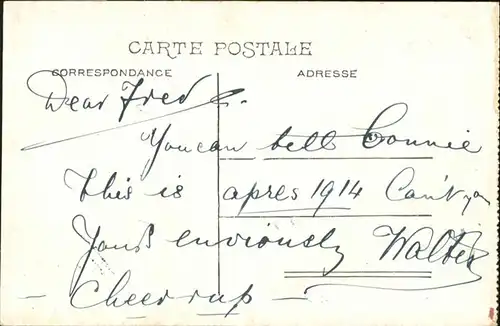 CARTE POSTALE
CORRESPONDANCE ADRESSE
Dear Fred
You can tell Connie
this is apres 1914 Can't you
Yours enviously Walter
- Cheer-up -